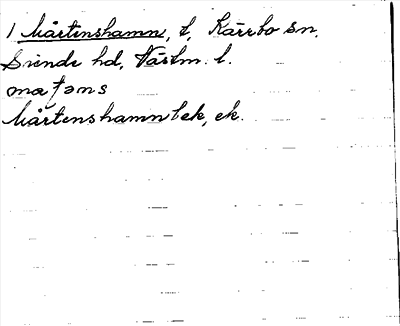 1 Mårtenshamn, t, Kärrbo sn,
Siende hd, Västm. l.
Mårtenshamn bek, ek.